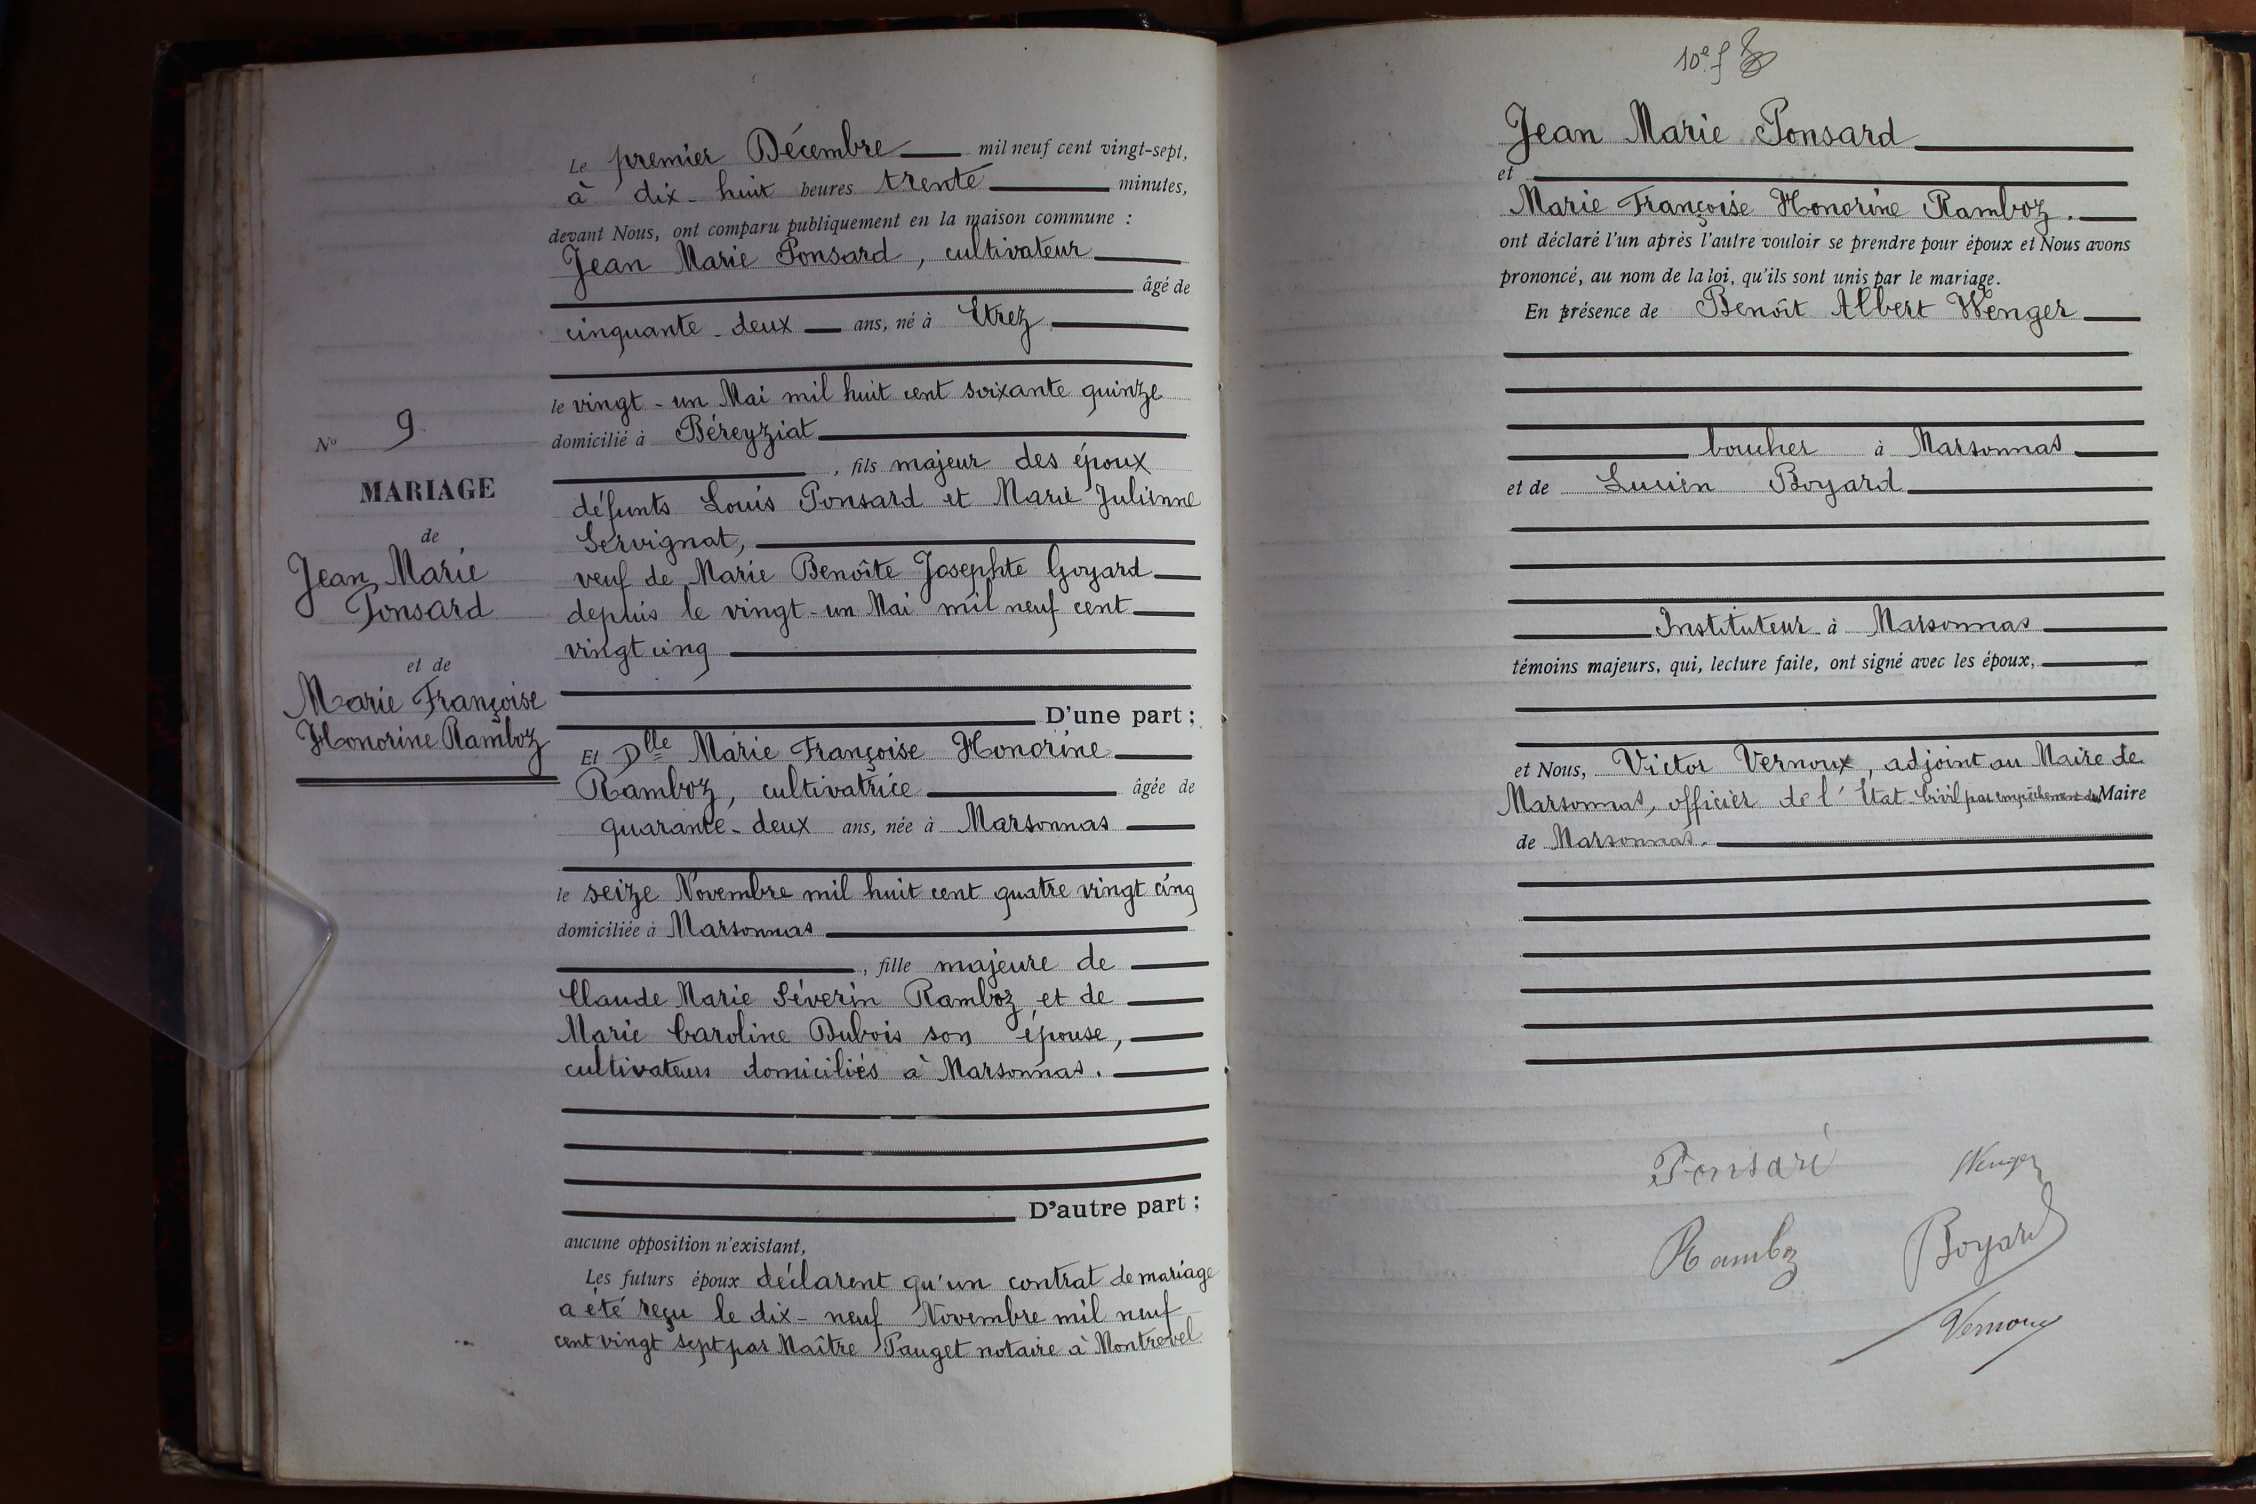 N° 9
MARIAGE
de
Jean Marie
Ponsard
et de
Marie Françoise
Honorine Ramboz
Le premier Décembre mil neuf cent vingt-sept,
à dix-huit heures trente minutes,
devant Nous, ont comparu publiquement en la maison commune :
Jean Marie Ponsard, cultivateur
âgé de
cinquante-deux ans, né à Etrez
le vingt-un Mai mil huit cent soixante quinze
domicilié à Béreyziat
, fils majeur des époux
défunts Louis Ponsard et Marie Julienne
Servignat,
veuf de Marie Benoîte Josephte Goyard
depuis le vingt-un Mai mil neuf cent
vingt cinq
D'une part ;
Et Dlle Marie Françoise Honorine
Ramboz, cultivatrice âgée de
quarante-deux ans, née à Marsonnas
le seize Novembre mil huit cent quatre vingt cinq
domiciliée à Marsonnas
, fille majeure de
Claude Marie Séverin Ramboz et de
Marie Caroline Dubois son épouse,
cultivateurs domiciliés à Marsonnas.
D'autre part ;
aucune opposition n'existant,
Les futurs époux déclarent qu'un contrat de mariage
a été reçu le dix-neuf Novembre mil neuf
cent vingt sept par Maître Pauget notaire à Montrevel
10e f
Jean Marie Ponsard
et
Marie Françoise Honorine Ramboz.
ont déclaré l'un après l'autre vouloir se prendre pour époux et Nous avons
prononcé, au nom de la loi, qu'ils sont unis par le mariage.
En présence de Benoît Albert Wenger
boucher à Marsonnas
et de Lucien Boyard
Instituteur à Marsonnas
témoins majeurs, qui, lecture faite, ont signé avec les époux,
et Nous, Victor Vernoux, adjoint au Maire de
Marsonnas, officier de l'Etat-Civil par empêchement du Maire
de Marsonnas.
Ponsard
Wenger
Ramboz
Boyard
Vernoux